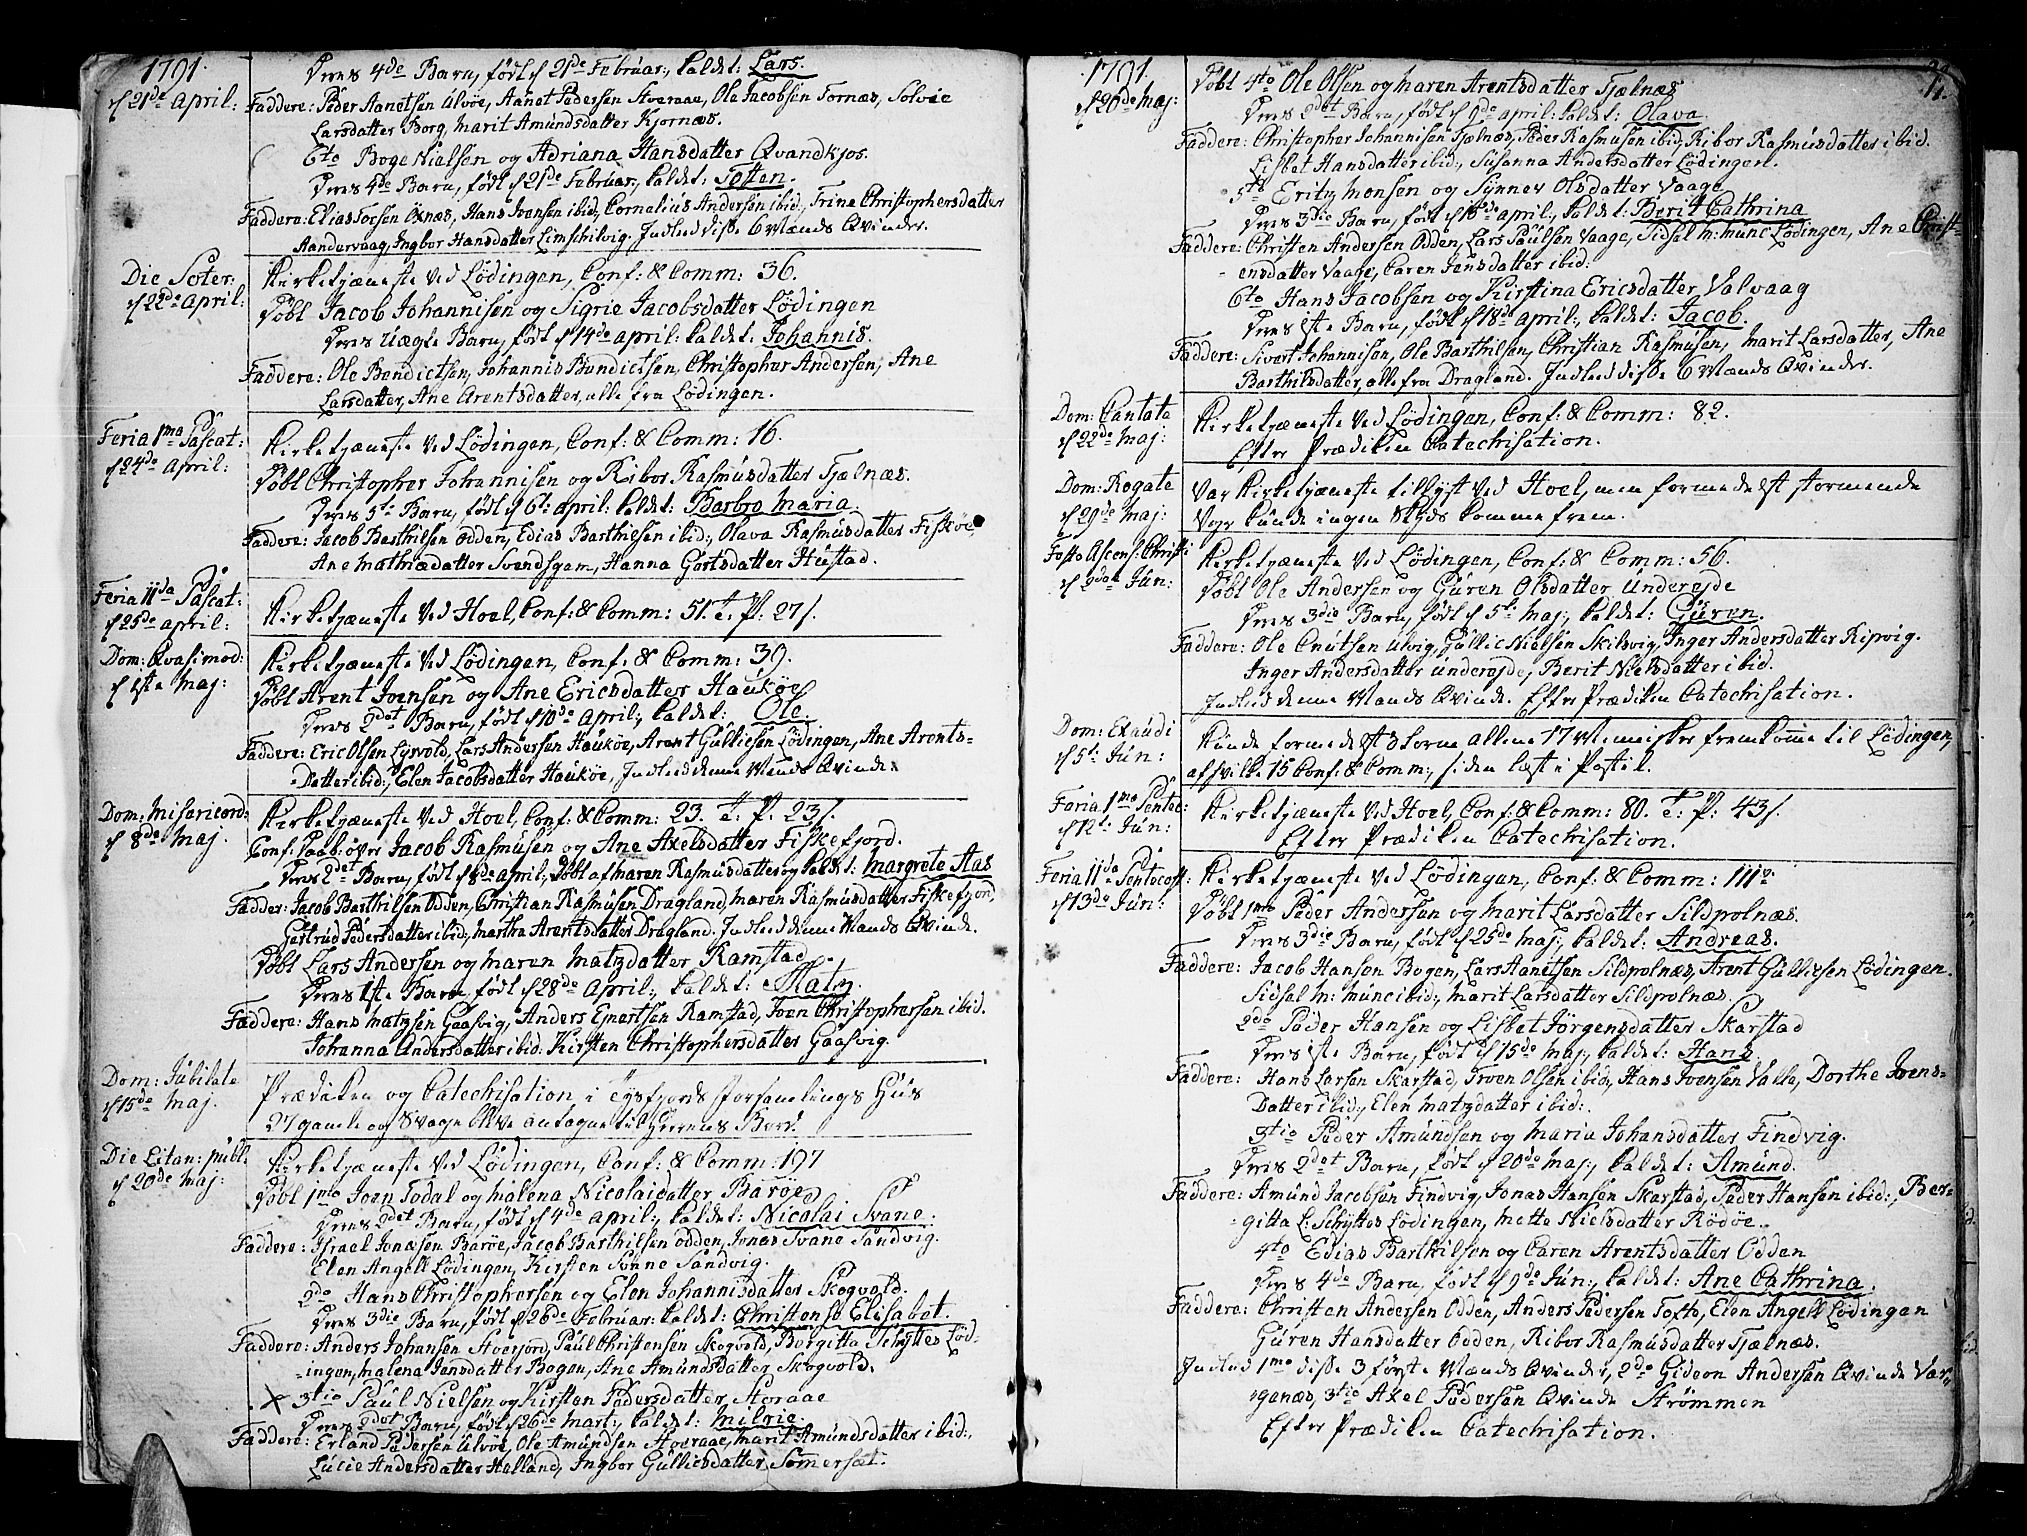 1791.
d 21de April:
Deres 4de Barn, født d 21de Februar:, kaldet: Lars.
Faddere: Peder Aanetsen Ulvøe, Aanet Pedersen Storaae, Ole Jacobsen Tornæs, Solvie
Larsdatter Borg, Marit Amundsdatter Kjornæs.
6te Boge Nielsen og Adriana Hansdatter Qvandkjos.
Deres 4de Barn, født d 21de Februar:, kaldet: Joften.
Faddere: Elias Torsen Öxnæs, Hans Ivensen ibid:, Cornelius Andersen ibid:, Trine Christophersdatter
Aandervaag, Ingbor Hansdatter Limschilvig. Indled disse 6 Mænds Qvinder.
Die Soter:
d 22de April:
Kirketjæneste ved Lödingen, Conf: & Comm: 36.
Døbt Jacob Johannisen og Sigrie Jacobsdatter Lödingen
Deres Uægte Barn, født d 14de April: kaldet: Johannis.
Faddere: Ole Bendictsen, Johannis Bendictsen, Christopher Andersen, Ane
Larsdatter, Ane Arentsdatter, alle fra Lödingen.
Feria 1ma Pascat:
d 24de April:
Kirketjæneste ved Lödingen, Conf: & Comm: 16.
Døbt Christopher Johannisen og Ribor Rasmusdatter Tjælnæs.
Deres 5te Barn, født d 6te April: kaldet: Barbro Maria.
Faddere: Jacob Barthilsen Odden, Edias Barthilsen ibid:, Olava Rasmusdatter Fiskøe,
Ane Mathiædatter Svendsgam, Hanna Gortsdatter Hustad.
Feria IIda Pascat:
d 25de April:
Kirketjæneste ved Hoel, Conf: & Comm: 51. T. P. 27 s.
Dom: Qvasimod:
d 1ste Maj:
Kirketjæneste ved Lödingen, Conf: & Comm: 39.
Døbt Arent Ivensen og Ane Ericsdatter Haukøe
Deres 2det Barn, født d 10de April:, kaldet: Ole.
Faddere: Eric Olsen Lysvold, Lars Andersen Haukøe, Arent Gullicsen Lödingen, Ane Arents-
datter ibid:, Elen Jacobsdatter Haukøe, Indled denne Mands Qvinde.
Dom: Misericord:
d 8de Maj.
Kirketjæneste ved Hoel, Conf: & Comm: 23. T. P. 23 s.
Conf: Daab: over Jacob Rasmusen og Ane Axelsdatter Fiskefjord.
Deres 2det Barn, født d 8de April:, døbt af Maren Rasmusdatter og kaldet: Margrete Aas
Fadder: Jacob Barthilsen Odden, Christian Rasmusen Dragland, Maren Rasmusdatter Fiskefjord,
Gertrud Pedersdatter ibid:, Martha Arentsdatter Dragland. Indled denne Mands Qvinde.
Døbt Lars Andersen og Maren Matzdatter Ramstad
Deres 1ste Barn født d 28de April:, kaldet: Matz.
Faddere: Hans Matzsen Gaasvig, Anders Ejnertsen Ramstad, Iven Christophersen ibid.
Johanna Andersdatter ibid: Kirsten Christophersdatter Gaasvig.
Dom: Jubilate
d 15de Maj.
Prædiken og Catechisation i Tysfjords Forsamlings Hus
27 gamle og Svage bleve antagne til Herrens Bord.
Die Litan: publ.
d 20de Maj:
Kirketjæneste ved Lödingen, Conf: & Comm: 197
Døbt 1mo Joen Todal og Malena Nicolaidatter Barøe
Deres 2det Barn, født d 4de April:, kaldet: Nicolai Svane.
Faddere: Israel Jonæsen Barøe, Jacob Barthilsen Odden, Jonas Svane Sandvig.
Elen Angell Lödingen, Kirsten Svane Sandvig.
2do Hans Christophersen og Elen Johannisdatter Skogvold.
Deres 3die Barn, født d 26de Februar: kaldet: Christense Elisabet.
Faddere: Anders Johansen Stverjord, Paul Christensen Skogvold, Borgitta Schyttes Löd-
ingen, Malena Jensdatter Bogen, Ane Amundsdatter Skogvold.
3tio Paul Nielsen og Kirsten Pedersdatter Storaae
Deres 2det Barn, født d 26de Mart:, kaldet: Milrie.
Faddere: Erland Pedersen Ulvöe, Ole Amundsen Storaae, Marit Amundsdatter ibid:,
Lucie Andersdatter Halland, Ingbor Gullicsdatter Somersæt.
1791.
d 20de Maj:
Døbt 4to Ole Olsen og Maren Arentsdatter Tjælnæs
Deres 2det Barn, født d 9de April: kaldet: Olava.
Faddere: Christopher Johannisen Tjælnæs, Peder Rasmusen ibid, Ribor Rasmusdatter ibid.
Lisbet Hansdatter ibid:, Susanna Andersdatter Lödingen.
5te Eritz Monsen og Synnev Olsdatter Vaage
Deres 3die Barn, født d 16de April:, kaldet: Berit Cathrina
Faddere: Christen Andersen Odden, Lars Paulsen Vaage, Sidsel M: Munc Lödingen, Ane Christ-
ensdatter Vaage, Caren Jensdatter ibid:
6te Hans Jacobsen og Kirstina Ericsdatter Valvaag
Deres 1ste Barn, født d 18de April:, kaldet: Jacob.
Faddere: Sivert Johannisen, Ole Barthilsen, Christian Rasmusen, Marit Larsdatter, Ane
Barthilsdatter, alle fra Dragland. Indled disse 6 Mænds Qvinder.
Dom: Cantate
d 22de Maj:
Kirketjæneste ved Lödingen, Conf: & Comm: 82.
Efter Prædiken Catechisation.
Dom: Rogate
d 29de Maj:
Var Kirketjæneste tillyst ved Hoel, men formedelst stormende
Vejr kunde ingen Skyds komme frem.
Festo Ascens: Christi
d 2den Jun:
Kirketjæneste ved Lödingen, Conf: & Comm: 56.
Døbt Ole Andersen og Guren Olsdatter Underejde
Deres 3die Barn, født d 5te Maj:, kaldet: Guren.
Faddere: Ole Cnutsen Ulvig, Gullic Nielsen Skilvig, Inger Andersdatter Kipvig.
Inger Andersdatter Underejde, Berit Nielsdatter ibid.
Indled denne Mands Qvinde. Efter Prædiken Catechisation.
Dom: Exaudi
d 5te Jun:
Kunde formedelst Storm allene 17 Mennisker fremkomme til Lödingen,
af hvilke 15 Conf: & Comm:, siden læst i Postil.
Feria 1ma Pentec:
d 12te Jun:
Kirketjæneste ved Hoel, Conf: & Comm: 80. T: P: 43 s.
Efter Prædiken Catechisation.
Feria IIda Pentecost:
d 13de Jun:
Kirketjæneste ved Lödingen, Conf: & Comm: 111.
Døbt 1mo Peder Andersen og Marit Larsdatter Sildpolnæs.
Deres 3die Barn, født d 25de Maj:, kaldet: Andreas.
Faddere: Jacob Hansen Bogen, Lars Aanetsen Sildpolnæs, Arent Gullicsen Lödingen.
Sidsel M: Munc ibid:, Marit Larsdatter Sildpolnæs.
2do Peder Hansen og Lisbet Jörgensdatter Skarstad
Deres 1ste Barn, født d 15de Maj:, kaldet: Hans.
Faddere: Hans Larsen Skarstad, Troen Olsen ibid:, Hans Ivensen Valle, Dorthe Ivens-
datter ibid:, Elen Matzdatter ibid:.
3tio Peder Amundsen og Maria Johansdatter Findvig.
Deres 2det Barn, født d 20de Maj:, kaldet: Amund.
Faddere: Amund Jacobsen Findvig, Jonas Hansen Skarstad, Peder Hansen ibid:, Ber-
gitta L: Schyttes Lödingen, Mette Nielsdatter Rödøe.
4to Edias Barthilsen og Caren Arentsdatter Odden
Deres 4de Barn, født d 9de Jun:, kaldet: Ane Cathrina.
Faddere: Christen Andersen Odden, Anders Pedersen Tofte, Elen Angell Lödingen
Guren Hansdatter Odden, Ribor Rasmusdatter Tjælnæs.
Indled 1mo disse 3 første Mænds Qvinder, 2do Gideon Andersen Qvinde Var-
genæs, 3tio Axel Pedersen Qvinde Strømmen
Efter Prædiken Catechisation.